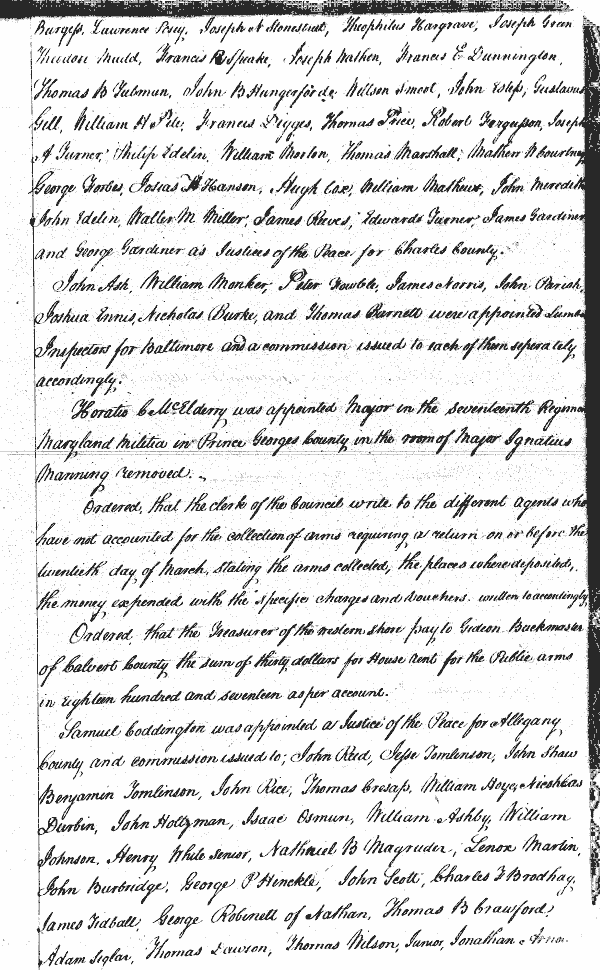 Burgess, Lawrence Posey, Joseph N Stonestreet, Theophilus Hargrave, Joseph Green
Theodore Mudd, Francis R Speake, Joseph Nathen, Francis E Dunnington,
Thomas B Tubman, John B Hungerford, Willson Smoot, John Estep, Gustavus
Gill, William H Pile, Francis Digges, Thomas Price, Robert Fergusson, Joseph
A Turner, Philip Edelin, William Morton, Thomas Marshall, Mathew
George Forbes, Josias H Hanson, Hugh Cox, William Mathews, John Meredith
John Edelin, Walter M Miller, James Reeves, Edward Turner, James Gardiner
and George Gardiner as Justices of the Peace for Charles County.
John Ash, William Monker, Peter Fowble, James Norris, John Parish,
Joshua Ennis, Nicholas Burke, and Thomas Burnett were appointed Lumber
Inspectors for Baltimore and a commission issued to each of them seperately
accordingly.
Horatio C McElderry was appointed Major in the seventeenth Regiment
Maryland Militia in Prince Georges County in the room of Major Ignatius
Manning removed.
Ordered, that the clerk of the Council write to the different agents who
have not accounted for the collection of arms requiring a return on or before the
twentieth day of March, stating the arms collected, the places where deposited,
the money expended with the specific charges and vouchers. written to accordingly
Ordered that the Treasurer of the western shore pay to Gideon Buckmaster
of Calvert County the sum of thirty dollars for House rent for the Public arms
in eighteen hundred and seventeen as per account.
Samuel Coddington was appointed a Justice of the Peace for Allegany
County and commission issued to; John Reed, Jesse Tomlinson, John Shaw
Benjamin Tomlinson, John Rice, Thomas Cresap, William Hoye, Nicholas
Durbin, John Holtzman, Isaac Osmun, William Ashby, William
Johnson, Henry While senior, Nathaniel B Magruder, Lenox Martin,
John Burbridge, George P Hinckle, John Scott, Charles F Brodhag,
James Tidball, George Robinett of Nathan, Thomas B Crawford,
Adam Siglar, Thomas Dawson, Thomas Wilson, Junior, Jonathan